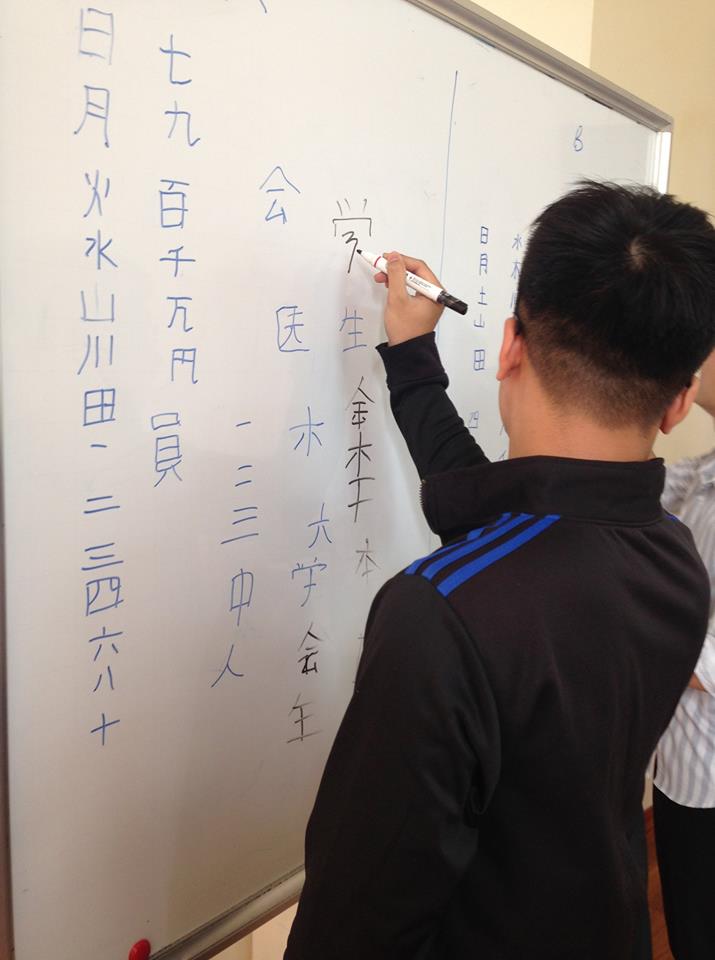 日月火水山川田一二三四六八十
七九百千万円員
一二三中人
会医木六学会生
学生金木本
B
日月土山田四
水木